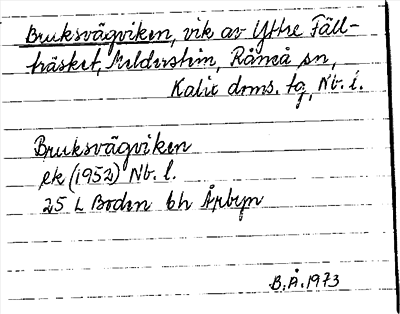 Bruksvägviken, vik av Yttre Fäll-
träsket, Melderstein, Råneå sn,
Kalix doms. tg, Nb. l.
Bruksvägviken
ek (1952) Nb. l.
25 L Boden bh Årbyn
B.Å. 1973